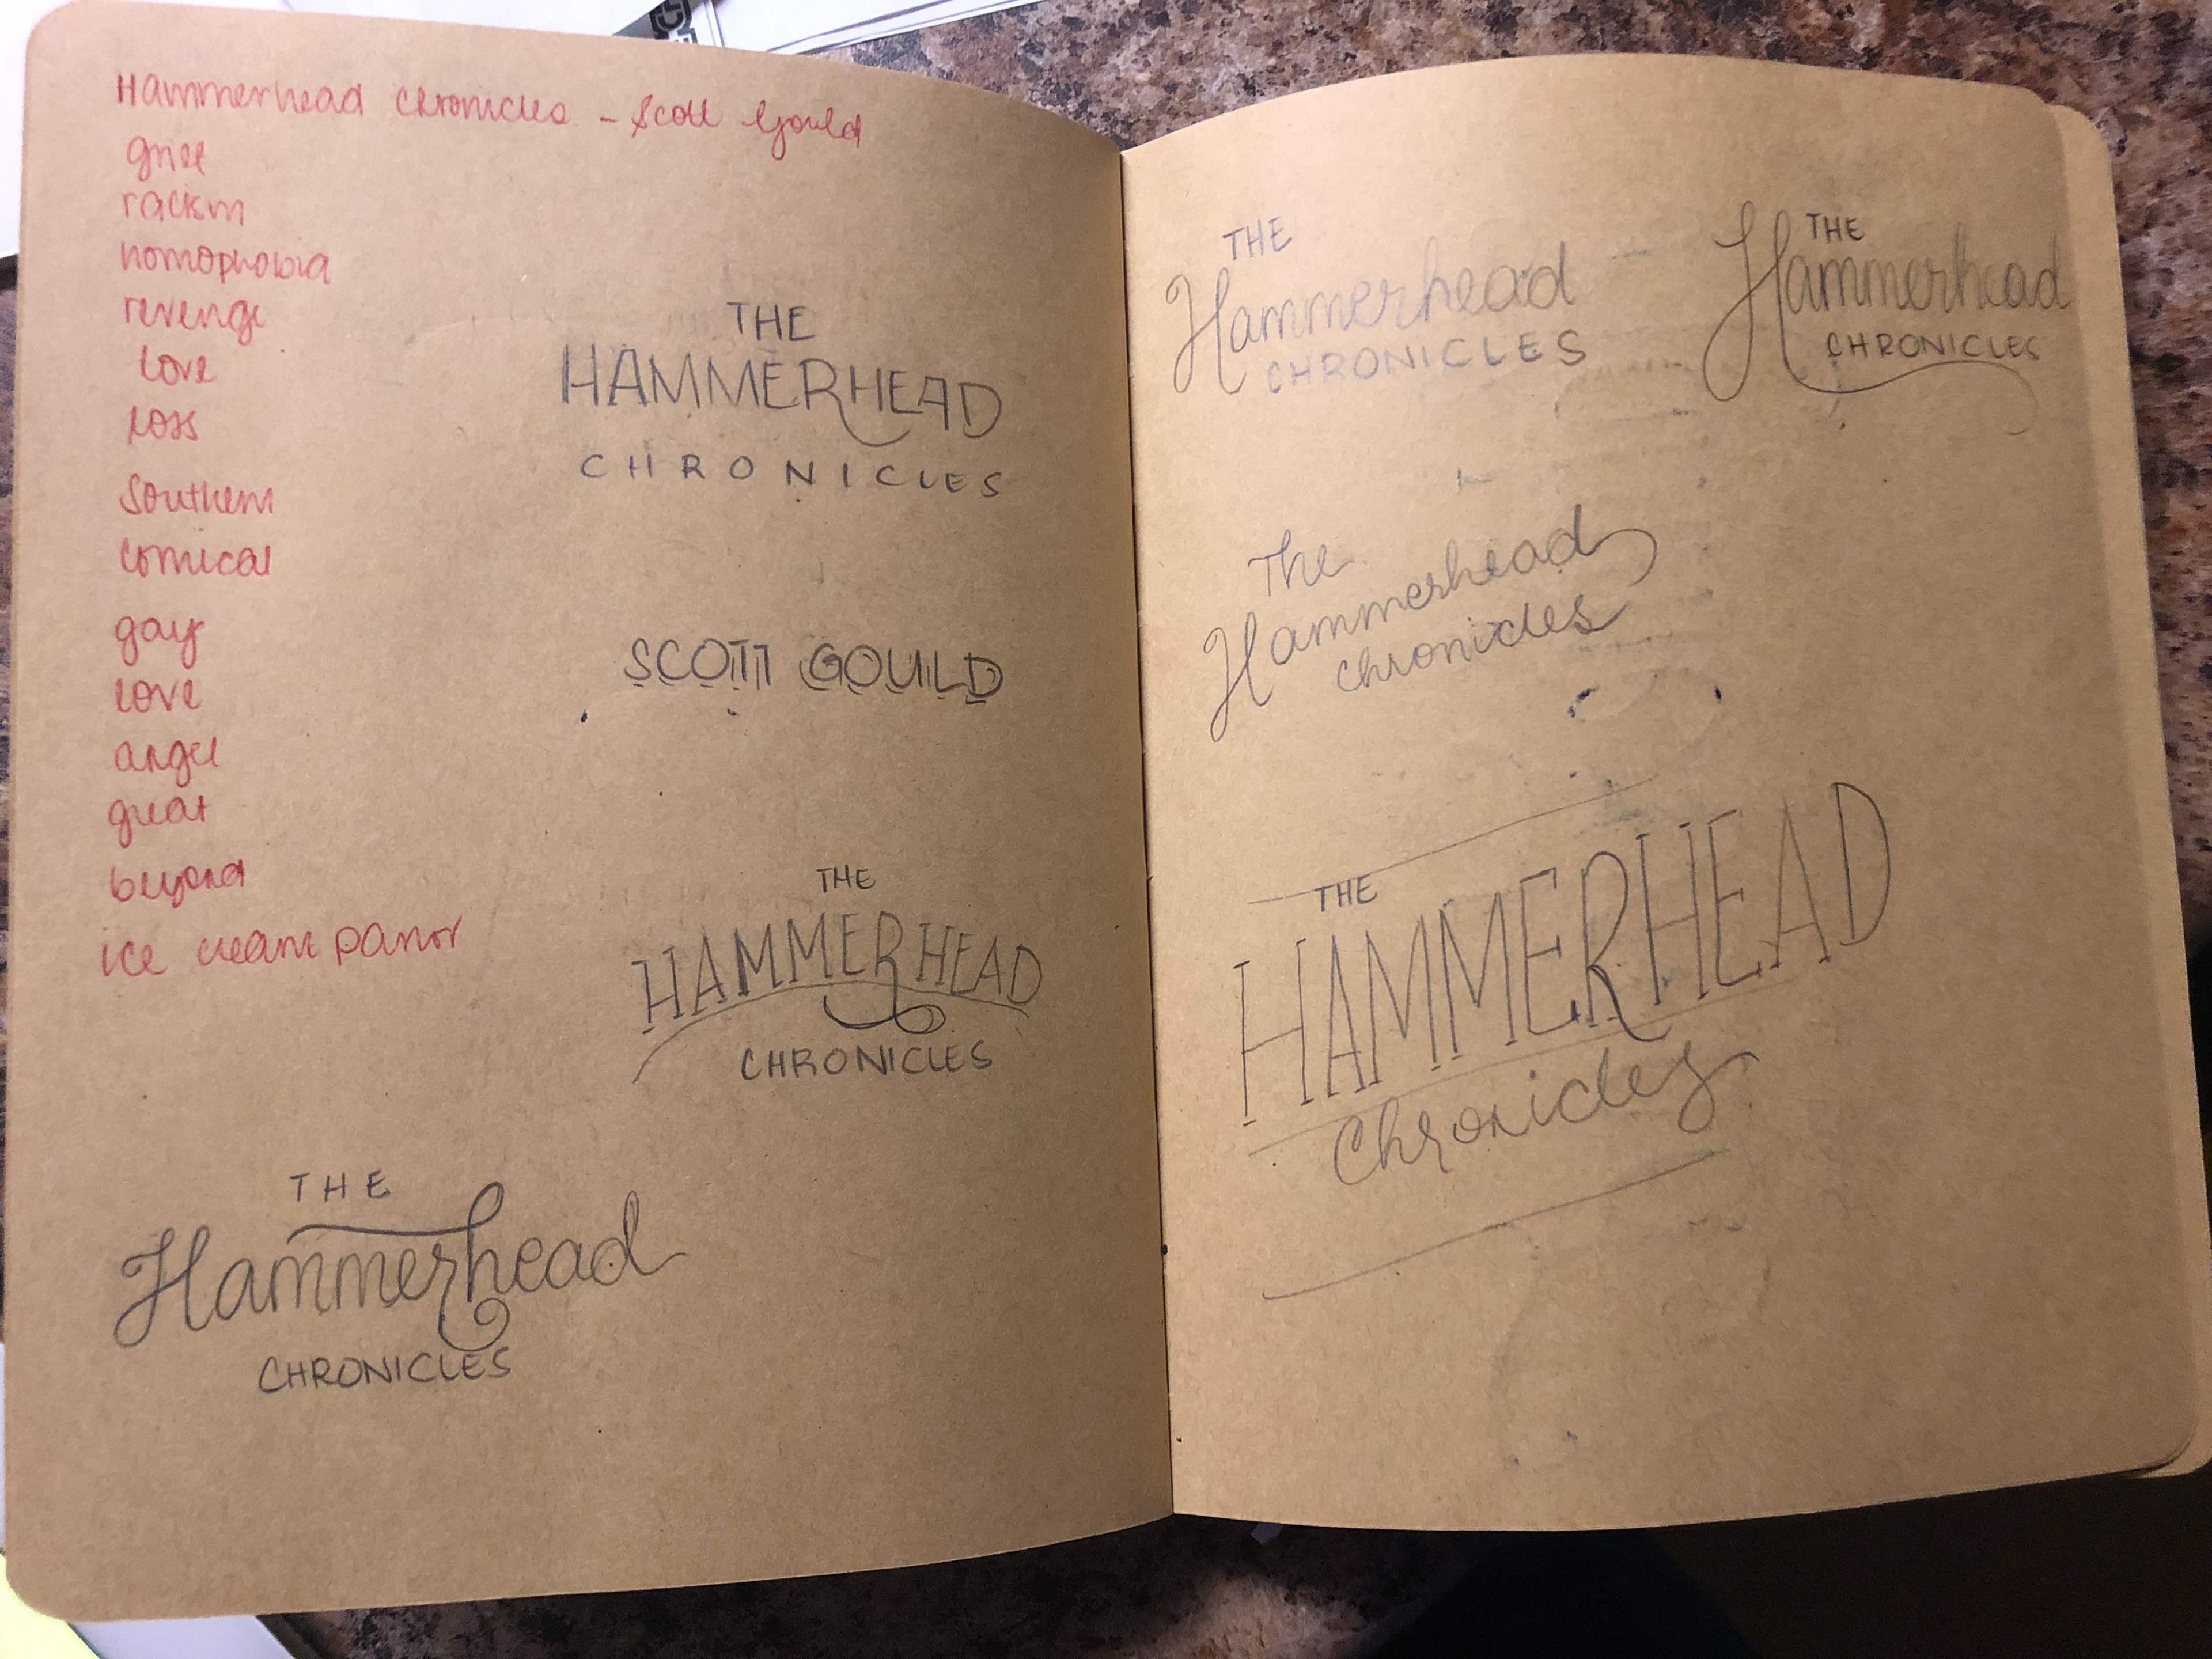 Hammerhead Chronicles - Scott Gould
grief
racism
homophobia
revenge
love
loss
Southern
comical
gay
love
angel
great
beyond
ice cream parlor
THE
HAMMERHEAD
CHRONICLES
SCOTT GOULD
THE
HAMMERHEAD
CHRONICLES
THE
Hammerhead
CHRONICLES
THE
Hammerhead
CHRONICLES
THE
Hammerhead
CHRONICLES
The
Hammerhead
Chronicles
THE
HAMMERHEAD
Chronicles